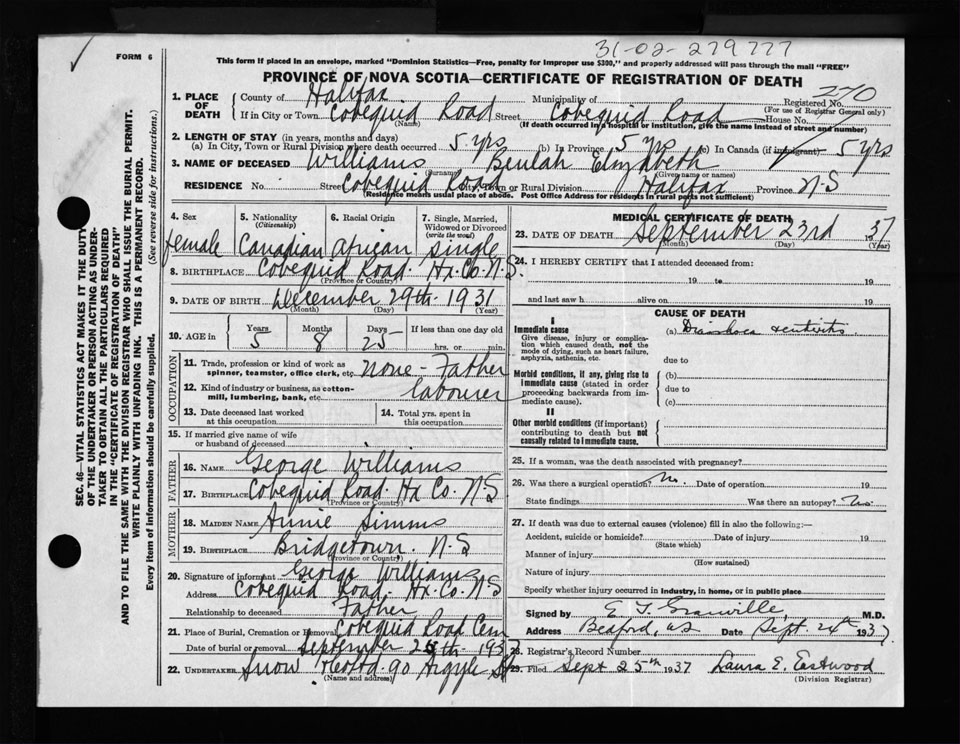 31-02-279777
FORM 6
This form if placed in an envelope, marked "Dominion Statistics—Free, penalty for improper use $300," and properly addressed will pass through the mail "FREE"
PROVINCE OF NOVA SCOTIA—CERTIFICATE OF REGISTRATION OF DEATH
SEC. 46—VITAL STATISTICS ACT MAKES IT THE DUTY
OF THE UNDERTAKER OR PERSON ACTING AS UNDER-
TAKER TO OBTAIN ALL THE PARTICULARS REQUIRED
IN THE "CERTIFICATE OF REGISTRATION OF DEATH"
AND TO FILE THE SAME WITH THE DIVISION REGISTRAR WHO SHALL ISSUE THE BURIAL PERMIT.
WRITE PLAINLY WITH UNFADING INK. THIS IS A PERMANENT RECORD.
Every item of information should be carefully supplied. (See reverse side for instructions.)
1. PLACE OF DEATH County of Halifax Municipality of Registered No. 270
(For use of Registrar General only)
If in City or Town Cobequid Road Street Cobequid Road House No.
(Name) (If death occurred in a hospital or institution, give the name instead of street and number)
2. LENGTH OF STAY (in years, months and days)
(a) In City, Town or Rural Division where death occurred 5 yrs (b) In Province 5 yrs (c) In Canada (if immigrant) 5 yrs
3. NAME OF DECEASED Williams Beulah Elizabeth
(Surname) (Given name or names)
RESIDENCE No. Street Cobequid Road Town or Rural Division Halifax Province N-S
(Residence means usual place of abode. Post Office Address for residents in rural parts not sufficient)
4. Sex female
5. Nationality (Citizenship) Canadian
6. Racial Origin African
7. Single, Married, Widowed or Divorced (write the word) single
8. BIRTHPLACE Cobequid Road. Hx. Co. N.S.
(Province or Country)
9. DATE OF BIRTH December 29th 1931
(Month) (Day) (Year)
10. AGE in Years 5 Months 8 Days 25 If less than one day old hrs. or min.
OCCUPATION
11. Trade, profession or kind of work as spinner, teamster, office clerk, etc. none - Father
12. Kind of industry or business, as cotton-mill, lumbering, bank, etc. labourer
13. Date deceased last worked at this occupation
14. Total yrs. spent in this occupation
15. If married give name of wife or husband of deceased
FATHER
16. NAME George Williams
17. BIRTHPLACE Cobequid Road. Hx Co. N.S
(Province or Country)
MOTHER
18. MAIDEN NAME Annie Simms
19. BIRTHPLACE Bridgetown. N-S
(Province or Country)
20. Signature of informant George Williams
Address Cobequid Road. Hx. Co. N-S
Relationship to deceased Father
21. Place of Burial, Cremation or Removal Cobequid Road Cem
Date of burial or removal September 25th 1937
22. UNDERTAKER Snow 90 Argyle St
(Name and address)
MEDICAL CERTIFICATE OF DEATH
23. DATE OF DEATH September 23rd 37
(Month) (Day) (Year)
24. I HEREBY CERTIFY that I attended deceased from:
19 to 19
and last saw h alive on 19
CAUSE OF DEATH
I
Immediate cause
Give disease, injury or complication which caused death, not the mode of dying, such as heart failure, asphyxia, asthenia, etc.
(a) Diarrhoea
due to
Morbid conditions, if any, giving rise to immediate cause (stated in order proceeding backwards from immediate cause).
(b)
due to
(c)
II
Other morbid conditions (if important) contributing to death but not causally related to immediate cause.
25. If a woman, was the death associated with pregnancy?
26. Was there a surgical operation? No. Date of operation 19
State findings Was there an autopsy? No
27. If death was due to external causes (violence) fill in also the following:—
Accident, suicide or homicide? Date of injury 19
(State which)
Manner of injury
(How sustained)
Nature of injury
Specify whether injury occurred in industry, in home, or in public place
Signed by E T Granville M.D.
Address Bedford, NS Date Sept. 24th 1937
28. Registrar's Record Number
29. Filed Sept 25th 1937 Laura E. Eastwood
(Division Registrar)